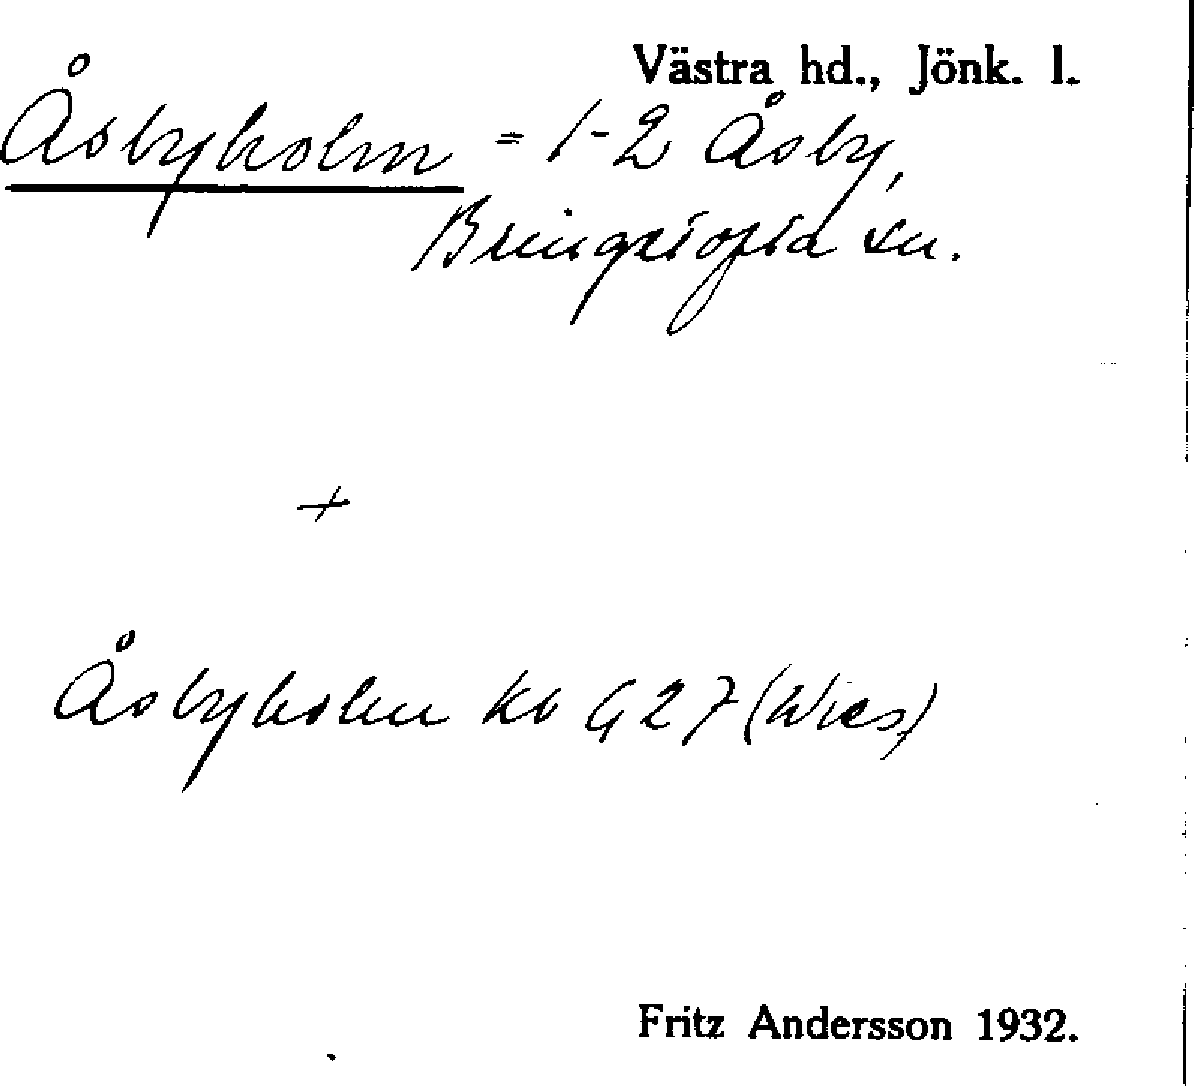 Västra hd., Jönk. l.
Åsbyholm = 1-2 Åsby,
Bringetofta sn.
+
Åsbyholm Kb G 27 (Wies)
Fritz Andersson 1932.